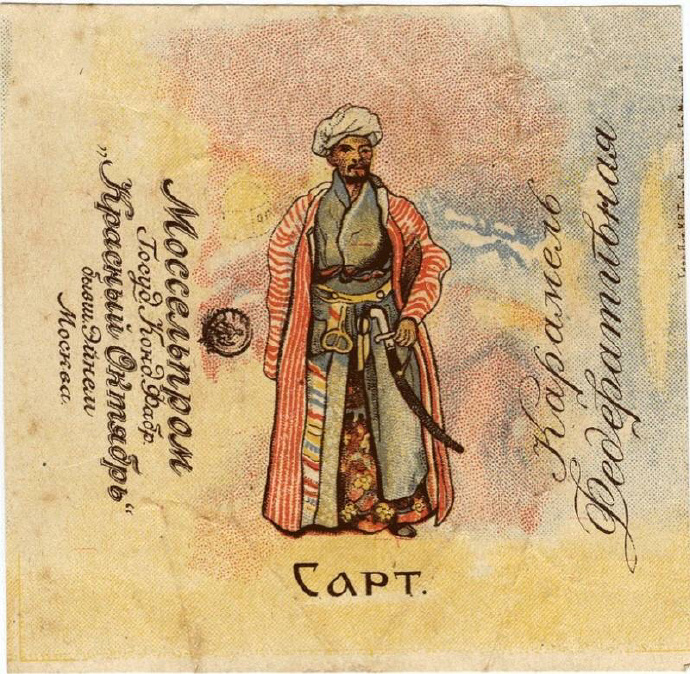 Моссельпром
Госуд. Конд. Фабр.
„Красный Октябрь“
бывш. Эйнем
Москва.
Карамель
Федеративная
Сарт.